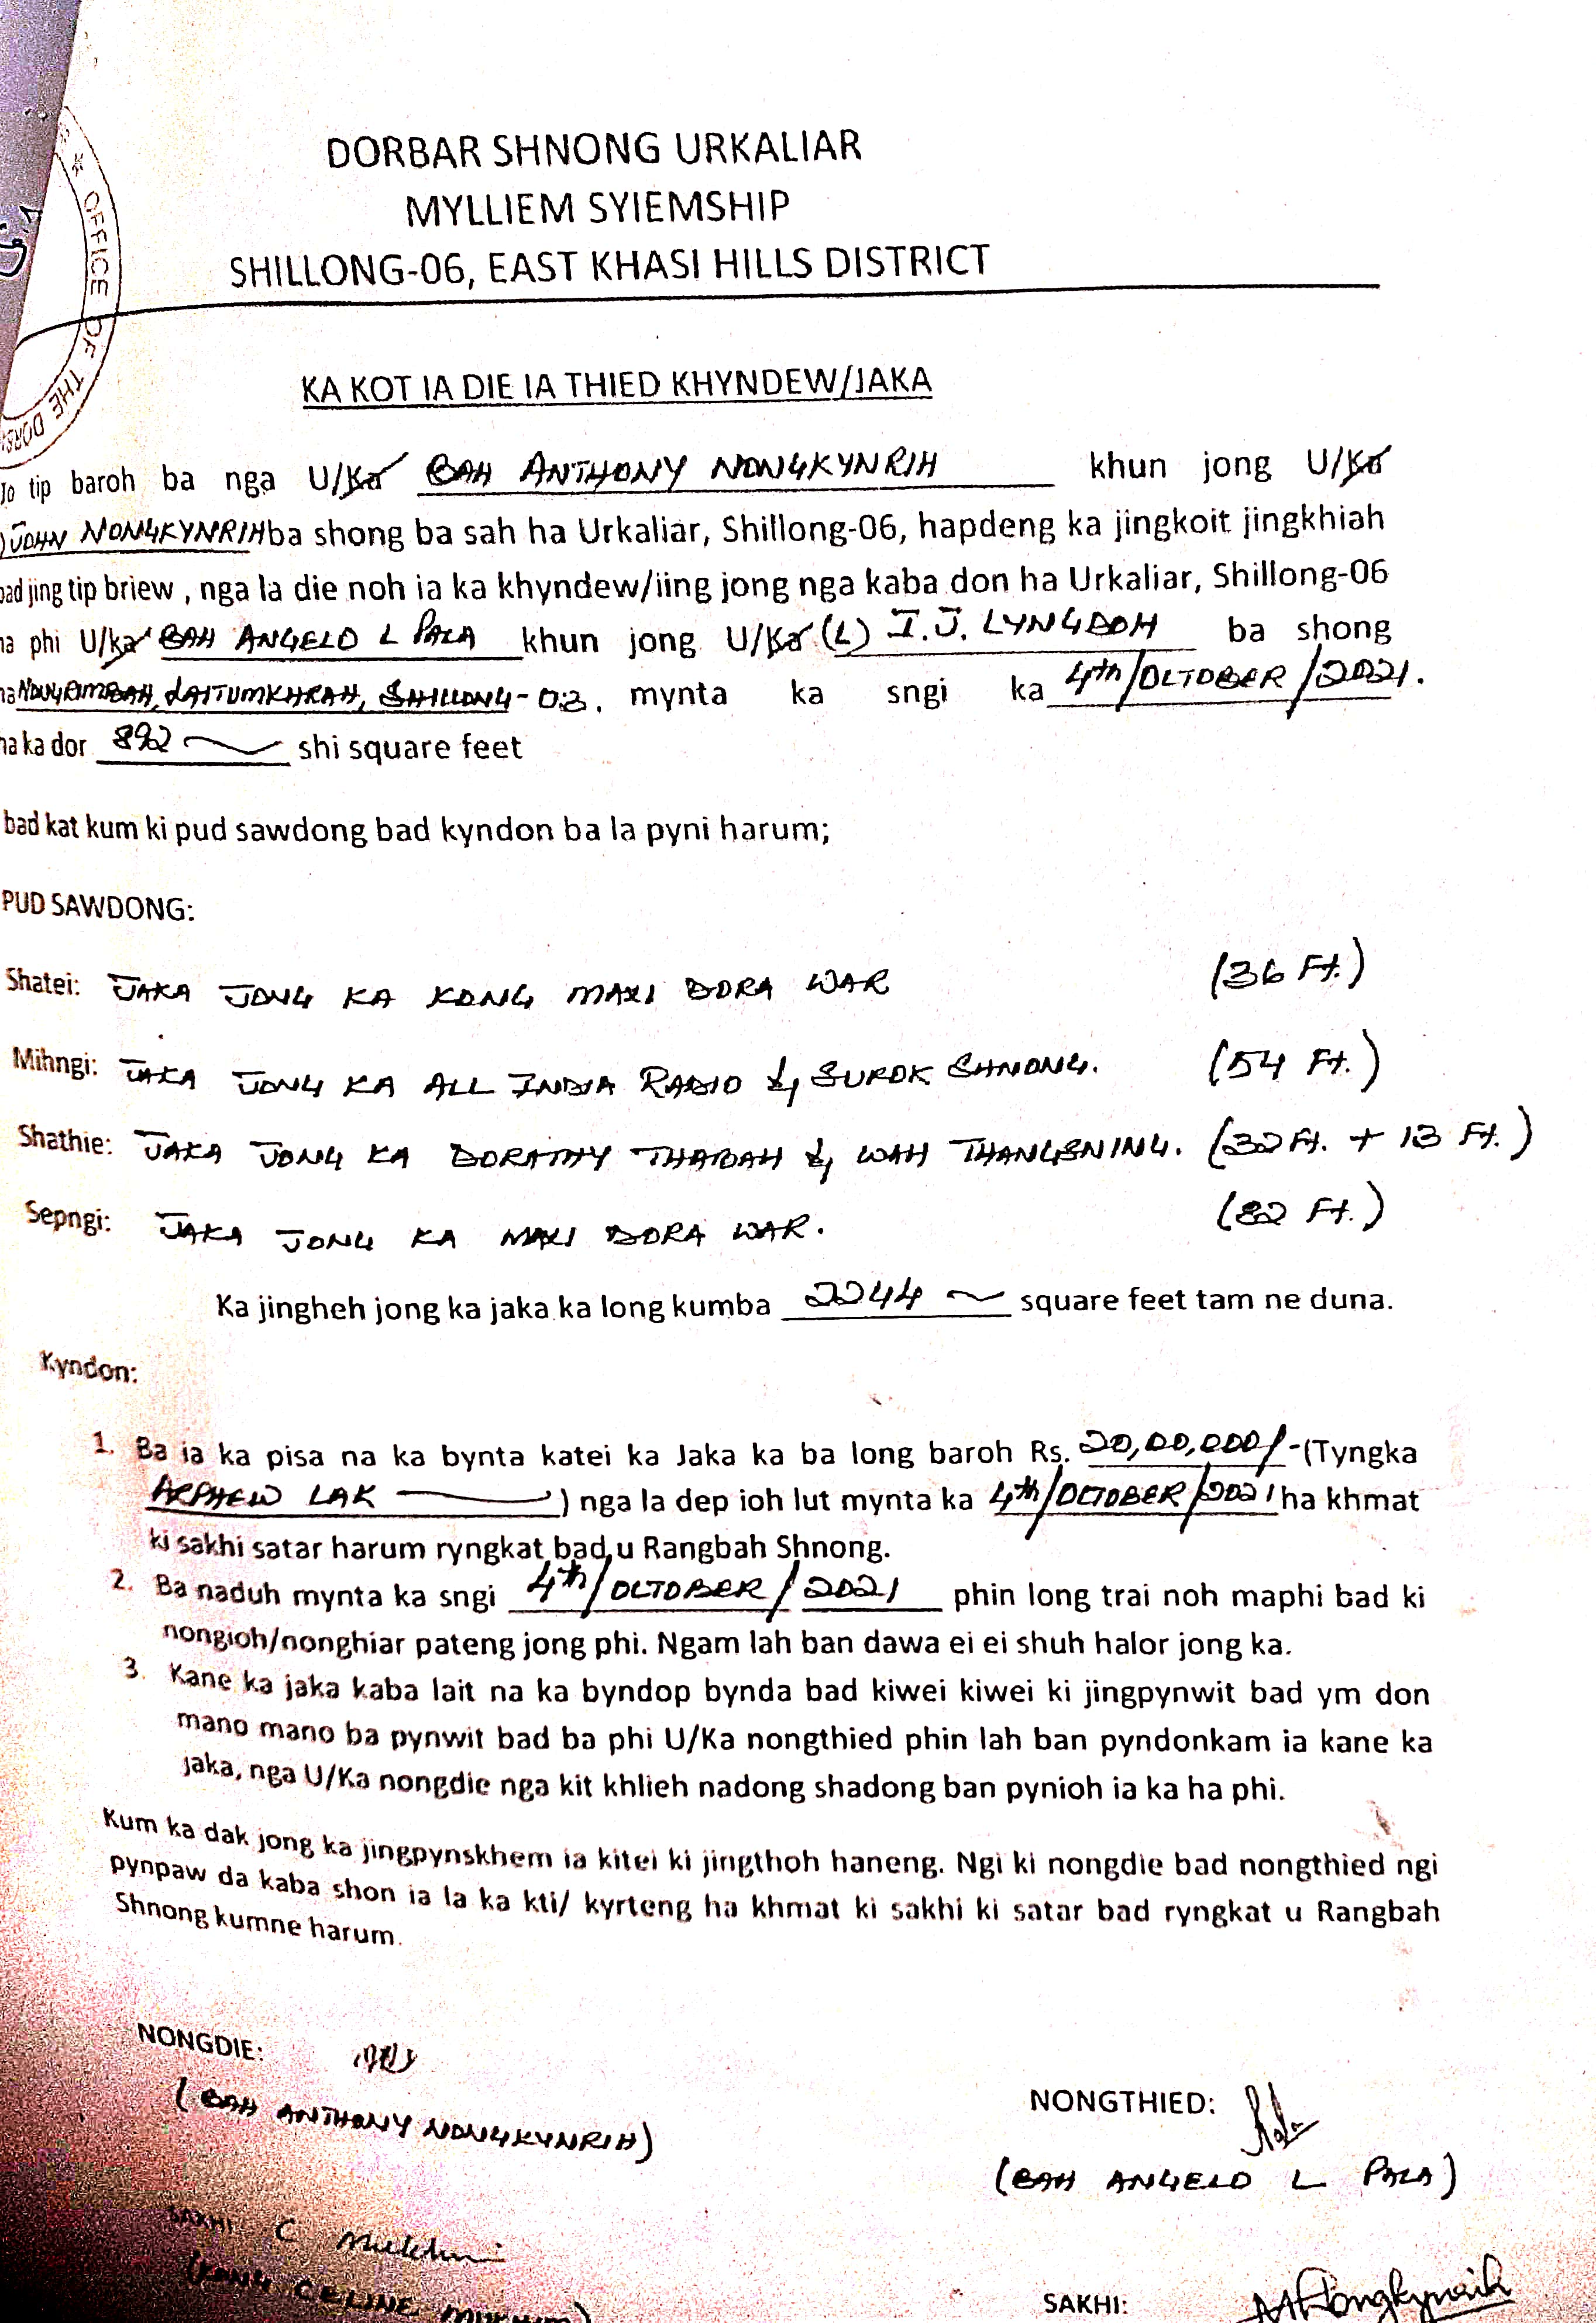 DORBAR SHNONG URKALIAR
MYLLIEM SYIEMSHIP
SHILLONG-06, EAST KHASI HILLS DISTRICT
OFFICE OF THE
KA KOT IA DIE IA THIED KHYNDEW/JAKA
tip baroh ba nga U/Ka BAH ANTHONY NONGKYNRIH khun jong U/Ka
JOHN NONGKYNRIH ba shong ba sah ha Urkaliar, Shillong-06, hapdeng ka jingkoit jingkhiah
bad jing tip briew , nga la die noh ia ka khyndew/iing jong nga kaba don ha Urkaliar, Shillong-06
phi U/ka BAH ANGELO L PALA khun jong U/Ka (L) I.J. LYNGDOH ba shong
NONGRIMBAH, LAITUMKHRAH, SHILLONG-03. mynta ka sngi ka 4th/OCTOBER/2021.
ka dor 892 shi square feet
bad kat kum ki pud sawdong bad kyndon ba la pyni harum;
PUD SAWDONG:
Shatei: JAKA JONG KA KONG MAXI DORA WAR (36 Ft.)
Mihngi: JAKA JONG KA ALL INDIA RADIO & SUROK SHNONG. (54 Ft.)
Shathie: JAKA JONG KA DORATHY THABAH & WAH THANGSNING. (32 Ft. + 13 Ft.)
Sepngi: JAKA JONG KA MAXI DORA WAR. (82 Ft.)
Ka jingheh jong ka jaka ka long kumba 2244 square feet tam ne duna.
Kyndon:
1. Ba ia ka pisa na ka bynta katei ka Jaka ka ba long baroh Rs. 20,00,000/-(Tyngka
ARPHEW LAK ) nga la dep ioh lut mynta ka 4th/OCTOBER/2021 ha khmat
ki sakhi satar harum ryngkat bad u Rangbah Shnong.
2. Ba naduh mynta ka sngi 4th/OCTOBER/2021 phin long trai noh maphi bad ki
nongioh/nonghiar pateng jong phi. Ngam lah ban dawa ei ei shuh halor jong ka.
3. Kane ka jaka kaba lait na ka byndop bynda bad kiwei kiwei ki jingpynwit bad ym don
mano mano ba pynwit bad ba phi U/Ka nongthied phin lah ban pyndonkam ia kane ka
jaka, nga U/Ka nongdie nga kit khlieh nadong shadong ban pynioh ia ka ha phi.
Kum ka dak jong ka jingpynskhem ia kitei ki jingthoh haneng. Ngi ki nongdie bad nongthied ngi
pynpaw da kaba shon ia la ka kti/ kyrteng ha khmat ki sakhi ki satar bad ryngkat u Rangbah
Shnong kumne harum.
NONGDIE:
(BAH ANTHONY NONGKYNRIH)
NONGTHIED:
(BAH ANGELO L PALA)
SAKHI: C
(KONG CELINE
SAKHI: